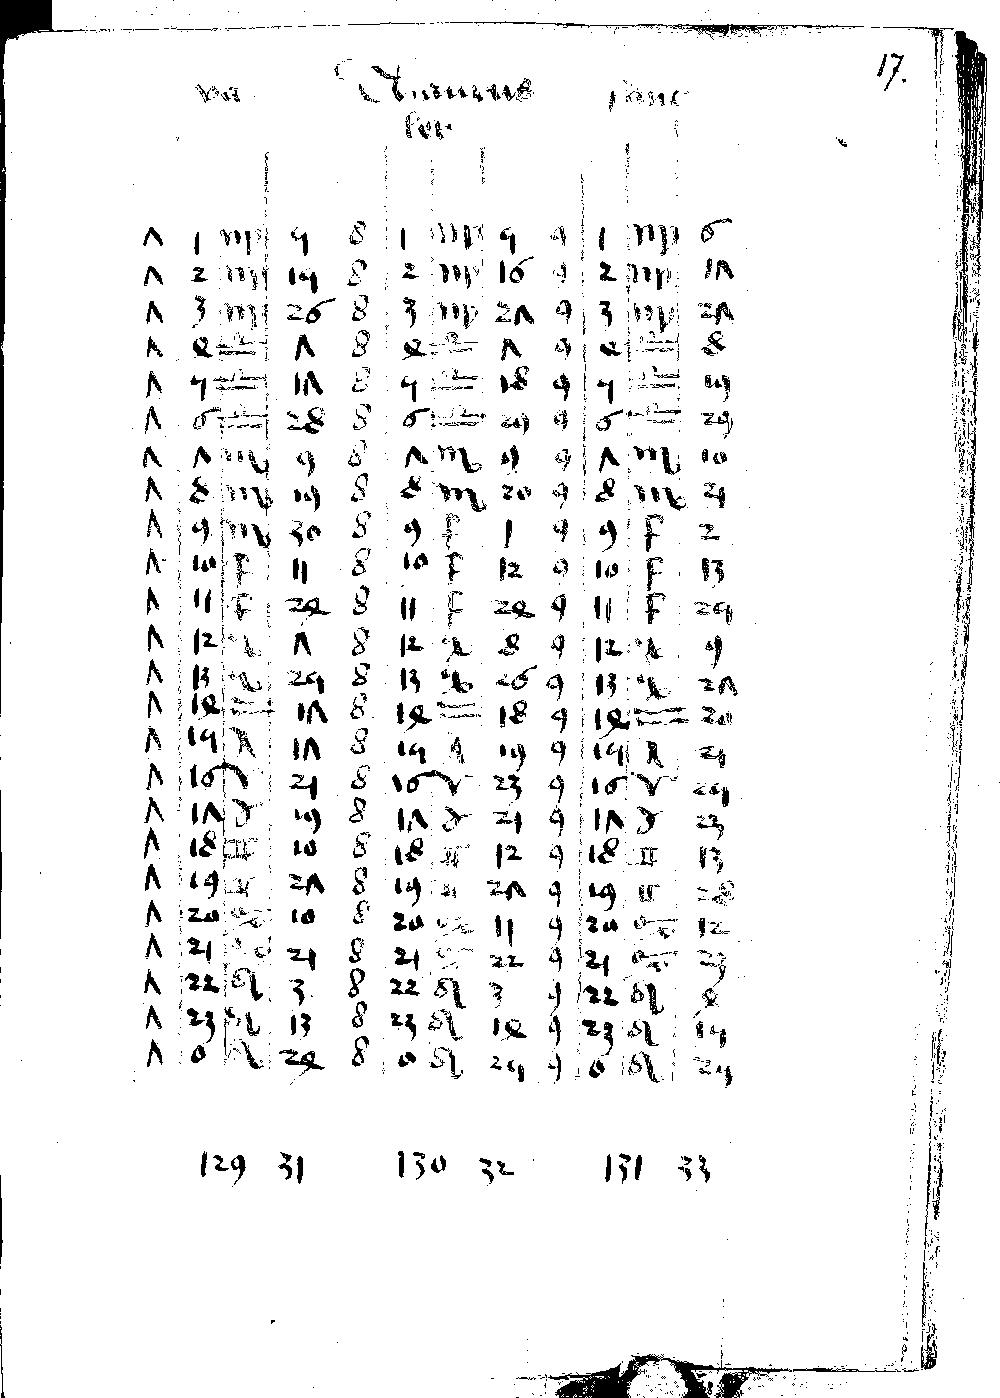 17.
7 1 ♍ 5 8 1 ♍ 5 9 1 ♍ 6
7 2 ♍ 15 8 2 ♍ 16 9 2 ♍ 17
7 3 ♍ 26 8 3 ♍ 27 9 3 ♍ 27
7 4 ♎ 7 8 4 ♎ 7 9 4 ♎ 8
7 5 ♎ 17 8 5 ♎ 18 9 5 ♎ 19
7 6 ♎ 28 8 6 ♎ 29 9 6 ♎ 29
7 7 ♏ 9 8 7 ♏ 9 9 7 ♏ 10
7 8 ♏ 19 8 8 ♏ 20 9 8 ♏ 21
7 9 ♏ 30 8 9 ♐ 1 9 9 ♐ 2
7 10 ♐ 11 8 10 ♐ 12 9 10 ♐ 13
7 11 ♐ 24 8 11 ♐ 24 9 11 ♐ 25
7 12 ♑ 7 8 12 ♑ 8 9 12 ♑ 9
7 13 ♑ 25 8 13 ♑ 26 9 13 ♑ 27
7 14 ♒ 17 8 14 ♒ 18 9 14 ♒ 20
7 15 ♓ 17 8 15 ♓ 19 9 15 ♓ 21
7 16 ♈ 21 8 16 ♈ 23 9 16 ♈ 25
7 17 ♉ 19 8 17 ♉ 21 9 17 ♉ 23
7 18 ♊ 10 8 18 ♊ 12 9 18 ♊ 13
7 19 ♊ 27 8 19 ♊ 27 9 19 ♊ 28
7 20 ♋ 10 8 20 ♋ 11 9 20 ♋ 12
7 21 ♋ 21 8 21 ♋ 22 9 21 ♋ 23
7 22 ♌ 3 8 22 ♌ 3 9 22 ♌ 4
7 23 ♌ 13 8 23 ♌ 14 9 23 ♌ 15
7 0 ♌ 24 8 0 ♌ 25 9 0 ♌ 25
129 31 130 32 131 33